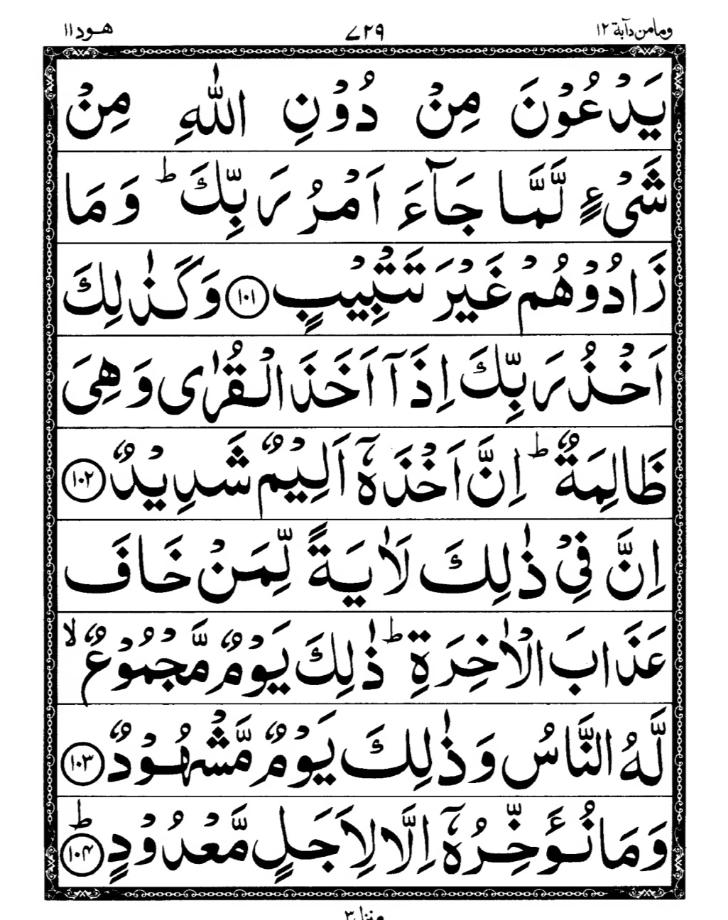 ومامن دآبة ١٢ ٧٢٩ هود ١١
يَدْعُوْنَ مِنْ دُوْنِ اللّٰهِ مِنْ
شَیْءٍ لَّمَّا جَآءَ اَمْرُ رَبِّكَ ؕ وَ مَا
زَادُوْهُمْ غَیْرَ تَتْبِیْبٍ ﴿۱۰۱﴾ وَ كَذٰلِكَ
اَخْذُ رَبِّكَ اِذَاۤ اَخَذَ الْقُرٰی وَ هِیَ
ظَالِمَةٌ ؕ اِنَّ اَخْذَهٗۤ اَلِیْمٌ شَدِیْدٌ ﴿۱۰۲﴾
اِنَّ فِیْ ذٰلِكَ لَاٰیَةً لِّمَنْ خَافَ
عَذَابَ الْاٰخِرَةِ ؕ ذٰلِكَ یَوْمٌ مَّجْمُوْعٌ ۙ
لَّهُ النَّاسُ وَ ذٰلِكَ یَوْمٌ مَّشْهُوْدٌ ﴿۱۰۳﴾
وَ مَا نُؤَخِّرُهٗۤ اِلَّا لِاَجَلٍ مَّعْدُوْدٍ ؕ ﴿۱۰۴﴾
منزل ٣